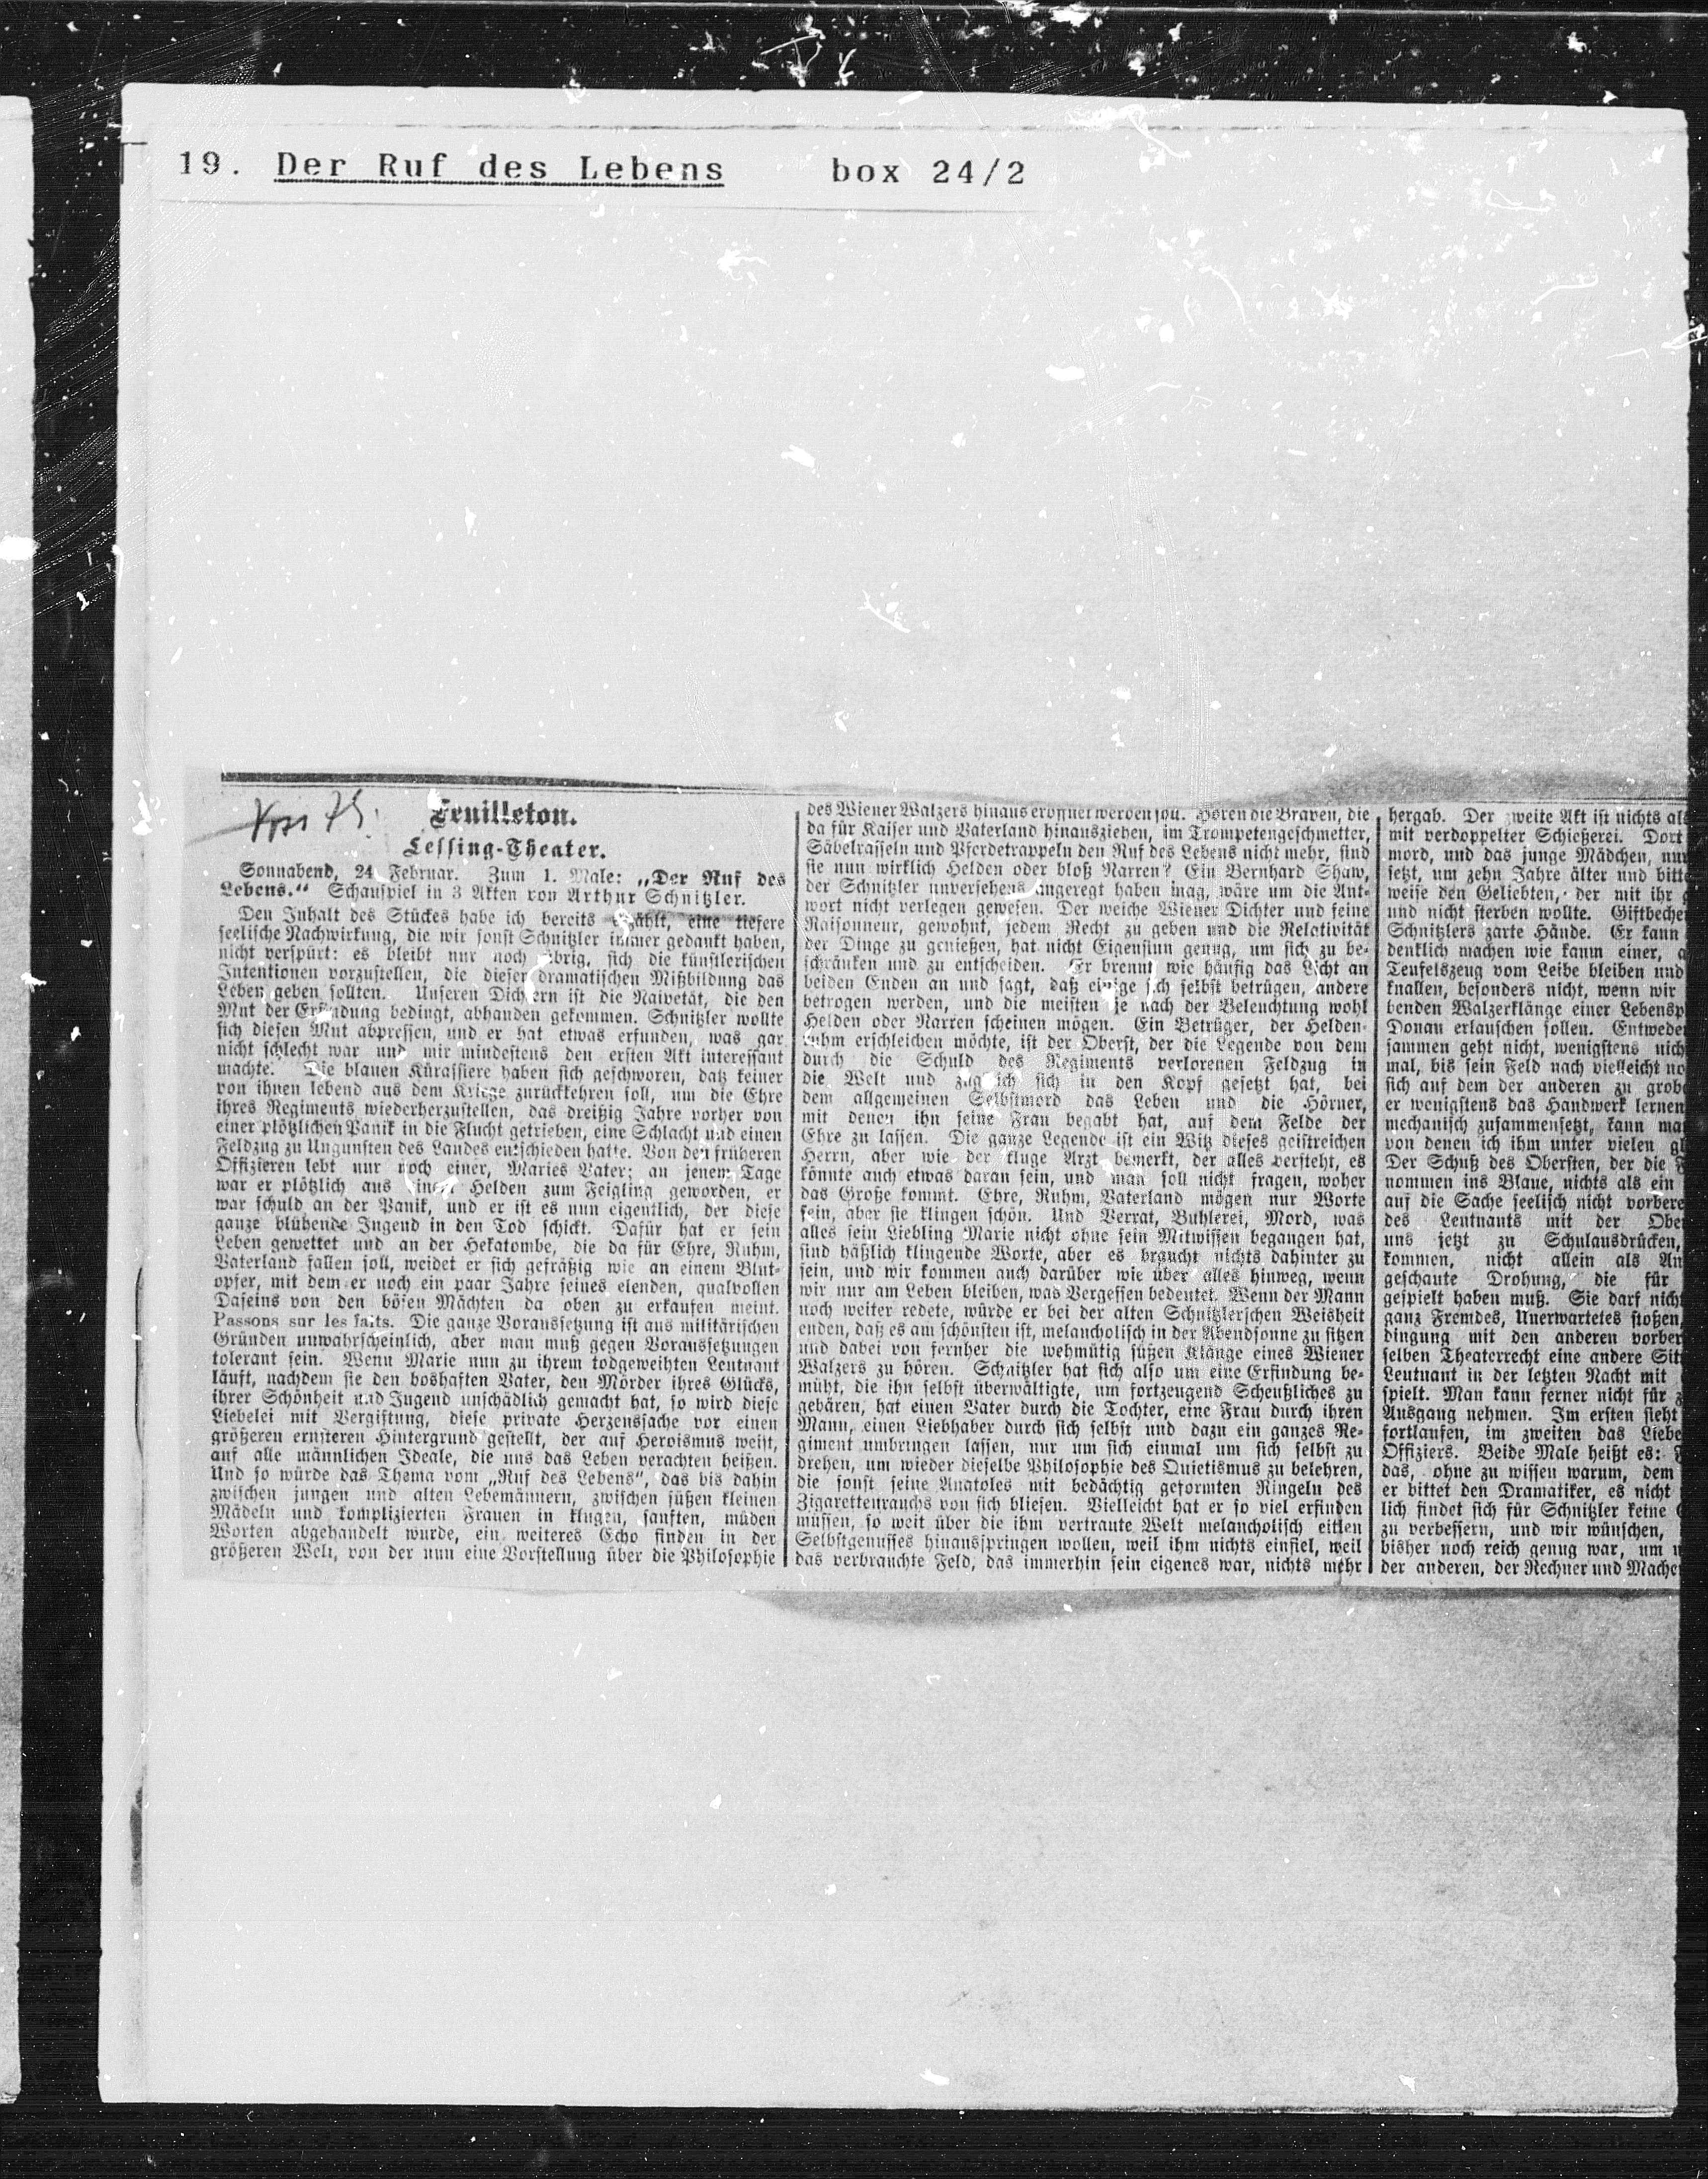 19. Der Ruf des Lebens box 24/2
Feuilleton.
Lessing-Theater.
Sonnabend, 24. Februar. Zum 1. Male: „Der Ruf des
Lebens.“ Schauspiel in 3 Akten von Arthur Schnitzler.
Den Inhalt des Stückes habe ich bereits erzählt, eine tiefere
seelische Nachwirkung, die wir sonst Schnitzler immer gedankt haben,
nicht verspürt: es bleibt nur noch übrig, sich die künstlerischen
Intentionen vorzustellen, die dieser dramatischen Mißbildung das
Leben geben sollten. Unseren Dichtern ist die Naivetät, die den
Mut der Erfindung bedingt, abhanden gekommen. Schnitzler wollte
sich diesen Mut abpressen, und er hat etwas erfunden, was gar
nicht schlecht war und mir mindestens den ersten Akt interessant
machte. Die blauen Kürassiere haben sich geschworen, daß keiner
von ihnen lebend aus dem Kriege zurückkehren soll, um die Ehre
ihres Regiments wiederherzustellen, das dreißig Jahre vorher von
einer plötzlichen Panik in die Flucht getrieben, eine Schlacht und einen
Feldzug zu Ungunsten des Landes entschieden hatte. Von den früheren
Offizieren lebt nur noch einer, Maries Vater; an jenem Tage
war er plötzlich aus einem Helden zum Feigling geworden, er
war schuld an der Panik, und er ist es nun eigentlich, der diese
ganze blühende Jugend in den Tod schickt. Dafür hat er sein
Leben gewettet und an der Hekatombe, die da für Ehre, Ruhm,
Vaterland fallen soll, weidet er sich gefräßig wie an einem Blut-
opfer, mit dem er noch ein paar Jahre seines elenden, qualvollen
Daseins von den bösen Mächten da oben zu erkaufen meint.
Passons sur les faits. Die ganze Voraussetzung ist aus militärischen
Gründen unwahrscheinlich, aber man muß gegen Voraussetzungen
tolerant sein. Wenn Marie nun zu ihrem todgeweihten Leutnant
läuft, nachdem sie den boshaften Vater, den Mörder ihres Glücks,
ihrer Schönheit und Jugend unschädlich gemacht hat, so wird diese
Liebelei mit Vergiftung, diese private Herzenssache vor einen
größeren ernsteren Hintergrund gestellt, der auf Heroismus weist,
auf alle männlichen Ideale, die uns das Leben verachten heißen.
Und so würde das Thema vom „Ruf des Lebens“, das bis dahin
zwischen jungen und alten Lebemännern, zwischen süßen kleinen
Mädeln und komplizierten Frauen in klugen, sanften, müden
Worten abgehandelt wurde, ein weiteres Echo finden in der
größeren Welt, von der nun eine Vorstellung über die Philosophie
des Wiener Walzers hinaus eröffnet werden soll. Hören die Braven, die
da für Kaiser und Vaterland hinausziehen, im Trompetengeschmetter,
Säbelrasseln und Pferdetrappeln den Ruf des Lebens nicht mehr, sind
sie nun wirklich Helden oder bloß Narren? Ein Bernhard Shaw,
der Schnitzler unversehens angeregt haben mag, wäre um die Ant-
wort nicht verlegen gewesen. Der weiche Wiener Dichter und feine
Raisonneur, gewohnt, jedem Recht zu geben und die Relativität
der Dinge zu genießen, hat nicht Eigensinn genug, um sich zu be-
schränken und zu entscheiden. Er brennt wie häufig das Licht an
beiden Enden an und sagt, daß einige sich selbst betrügen, andere
betrogen werden, und die meisten je nach der Beleuchtung wohl
Helden oder Narren scheinen mögen. Ein Betrüger, der Helden-
ruhm erschleichen möchte, ist der Oberst, der die Legende von dem
durch die Schuld des Regiments verlorenen Feldzug in
die Welt und zugleich sich in den Kopf gesetzt hat, bei
dem allgemeinen Selbstmord das Leben und die Hörner,
mit denen ihn seine Frau begabt hat, auf dem Felde der
Ehre zu lassen. Die ganze Legende ist ein Witz dieses geistreichen
Herrn, aber wie der kluge Arzt bemerkt, der alles versteht, es
könnte auch etwas daran sein, und man soll nicht fragen, woher
das Große kommt. Ehre, Ruhm, Vaterland mögen nur Worte
sein, aber sie klingen schön. Und Verrat, Buhlerei, Mord, was
alles sein Liebling Marie nicht ohne sein Mitwissen begangen hat,
sind häßlich klingende Worte, aber es braucht nichts dahinter zu
sein, und wir kommen auch darüber wie über alles hinweg, wenn
wir nur am Leben bleiben, was Vergessen bedeutet. Wenn der Mann
noch weiter redete, würde er bei der alten Schnitzlerschen Weisheit
enden, daß es am schönsten ist, melancholisch in der Abendsonne zu sitzen
und dabei von fernher die wehmütig süßen Klänge eines Wiener
Walzers zu hören. Schnitzler hat sich also um eine Erfindung be-
müht, die ihn selbst überwältigte, um fortzeugend Scheußliches zu
gebären, hat einen Vater durch die Tochter, eine Frau durch ihren
Mann, einen Liebhaber durch sich selbst und dazu ein ganzes Re-
giment umbringen lassen, nur um sich einmal um sich selbst zu
drehen, um wieder dieselbe Philosophie des Quietismus zu belehren,
die sonst seine Anatoles mit bedächtig geformten Ringeln des
Zigarettenrauchs von sich bliesen. Vielleicht hat er so viel erfinden
müssen, so weit über die ihm vertraute Welt melancholisch eitlen
Selbstgenusses hinausspringen wollen, weil ihm nichts einfiel, weil
das verbrauchte Feld, das immerhin sein eigenes war, nichts mehr
hergab. Der zweite Akt ist nichts als
mit verdoppelter Schießerei. Dort
mord, und das junge Mädchen, nun
setzt, um zehn Jahre älter und bitte
weise den Geliebten, der mit ihr
und nicht sterben wollte. Giftbeche
Schnitzlers zarte Hände. Er kann
denklich machen wie kaum einer,
Teufelszeug vom Leibe bleiben und
knallen, besonders nicht, wenn wir
benden Walzerklänge einer Lebensp
Donau erlauschen sollen. Entwede
sammen geht nicht, wenigstens nich
mal, bis sein Feld nach vielleicht no
sich auf dem der anderen zu grob
er wenigstens das Handwerk lernen
mechanisch zusammensetzt, kann ma
von denen ich ihm unter vielen gl
Der Schuß des Obersten, der die
nommen ins Blaue, nichts als ein
auf die Sache seelisch nicht vorbere
des Leutnants mit der Ober
uns jetzt zu Schulausdrücken,
kommen, nicht allein als An
geschaute Drohung, die für
gespielt haben muß. Sie darf nicht
ganz Fremdes, Unerwartetes stoßen,
dingung mit den anderen vorber
selben Theaterrecht eine andere Sit
Leutnant in der letzten Nacht mit
spielt. Man kann ferner nicht für
Ausgang nehmen. Im ersten sieht
fortlaufen, im zweiten das Liebe
Offiziers. Beide Male heißt es:
das, ohne zu wissen warum, dem
er bittet den Dramatiker, es nicht
lich findet sich für Schnitzler keine
zu verbessern, und wir wünschen,
bisher noch reich genug war, um
der anderen, der Rechner und Mache